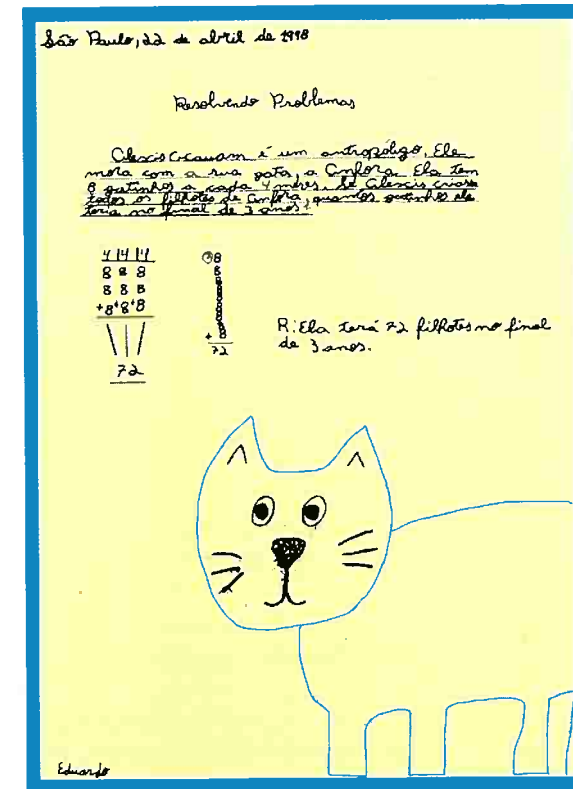 São Paulo, 22 de abril de 1998
Resolvendo Problemas
é um antropóligo. Ele
mora com a sua gata, a Anfora. Ela tem
8 gatinhos a cada 4 meses. Se Alexis criasse
todos os filhotes de Anfora, quantos gatinhos ele
teria no final de 3 anos.
4 14 14
8 8 8
8 8 8
+8+8+8
72
8
8
8
8
8
8
8
8
+ 8
72
R: Ela terá 72 filhotes no final
de 3 anos.
Eduardo